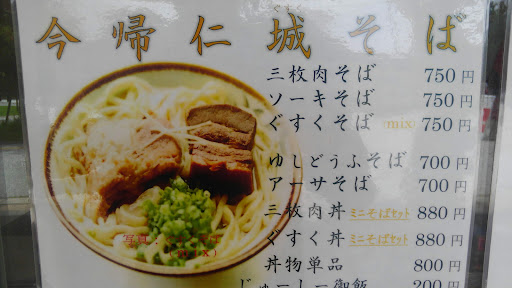 今帰仁城そば
三枚肉そば 750円
ソーキそば 750円
ぐすくそば (mix) 750円
ゆしどうふそば 700円
アーサそば 700円
三枚肉丼 ミニそばセット 880円
ぐすく丼 ミニそばセット 880円
丼物単品 800円
じゅーしー御飯 200円